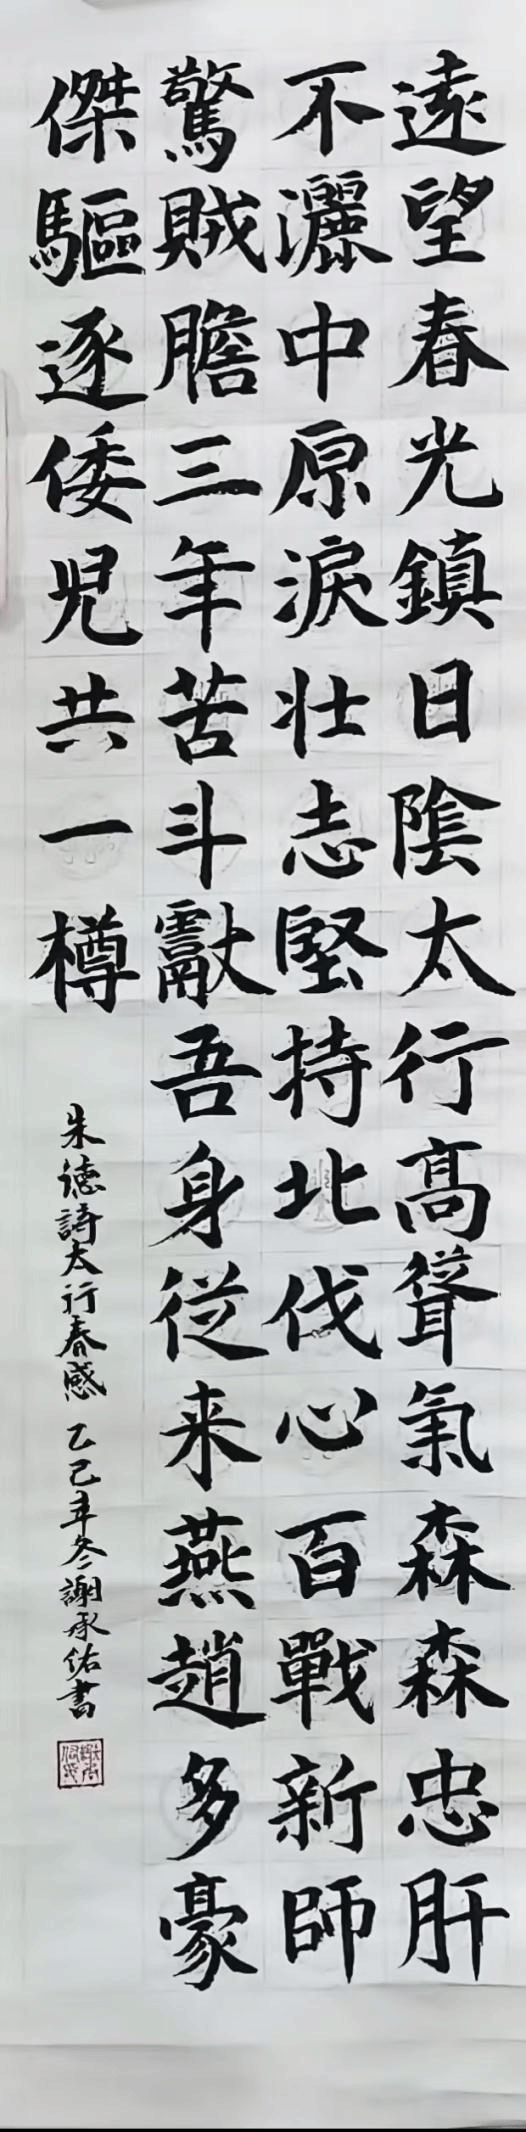 遠望春光鎮日陰太行高聳氣森森忠肝
不灑中原淚壯志堅持北伐心百戰新師
驚賊膽三年苦斗獻吾身從来燕趙多豪
傑驅逐倭児共一樽
朱德詩太行春感 乙巳年冬謝承佑書